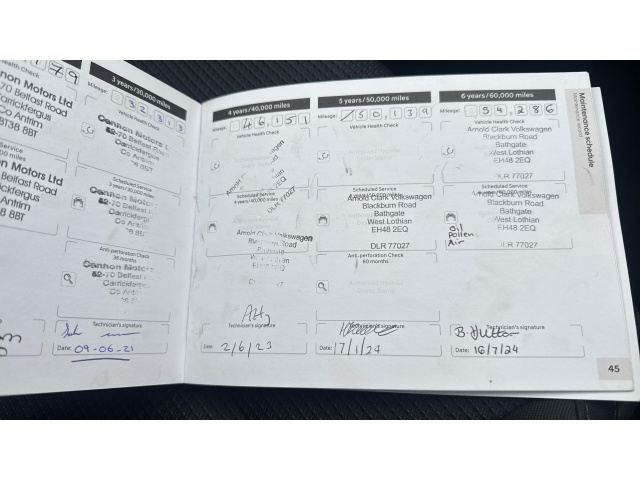 179
Health Check
non Motors Ltd
70 Belfast Road
Carrickfergus
Co Antrim
BT38 8BT
00 miles
n Motors Ltd
Belfast Road
rickfergus
Antrim
8 8BT
3 years/30,000 miles
Mileage: 32,313
Vehicle Health Check
Cannon Motors L
62-70 Belfast R
Carrickfergus
Co Antrim
Scheduled Service
3 years/30,000 miles
Cannon Moto
62-70 Belfast
Carrickferg
Co Antrim
Anti-perforation Check
36 months
Cannon Motors
62-70 Belfast
Carrickfergus
Co Antrim
Technician's signature
Date: 09-06-21
4 years/40,000 miles
Mileage: 46,151
Vehicle Health Check
Arnold
2EQ
DLR 77027
Scheduled Service
4 years/40,000 miles
Arnold Clark Volkswagen
Blackburn Road
Technician's signature
Date: 2/6/23
5 years/50,000 miles
Mileage: 50,139
Vehicle Health Check
Scheduled Service
5 years/50,000 miles
Arnold Clark Volkswagen
Blackburn Road
Bathgate
West Lothian
EH48 2EQ
DLR 77027
Anti-perforation Check
60 months
Technician's signature
Date: 17/1/24
6 years/60,000 miles
Mileage: 54,286
Vehicle Health Check
Arnold Clark Volkswagen
Blackburn Road
Bathgate
West Lothian
EH48 2EQ
DLR 77027
Scheduled Service
6 years/60,000 miles
Arnold Clark Volkswagen
Blackburn Road
Bathgate
West Lothian
EH48 2EQ
DLR 77027
Oil
Pollen
Air
Technician's signature
B. Hutton
Date: 16/7/24
Maintenance schedule
Maintenance record
45